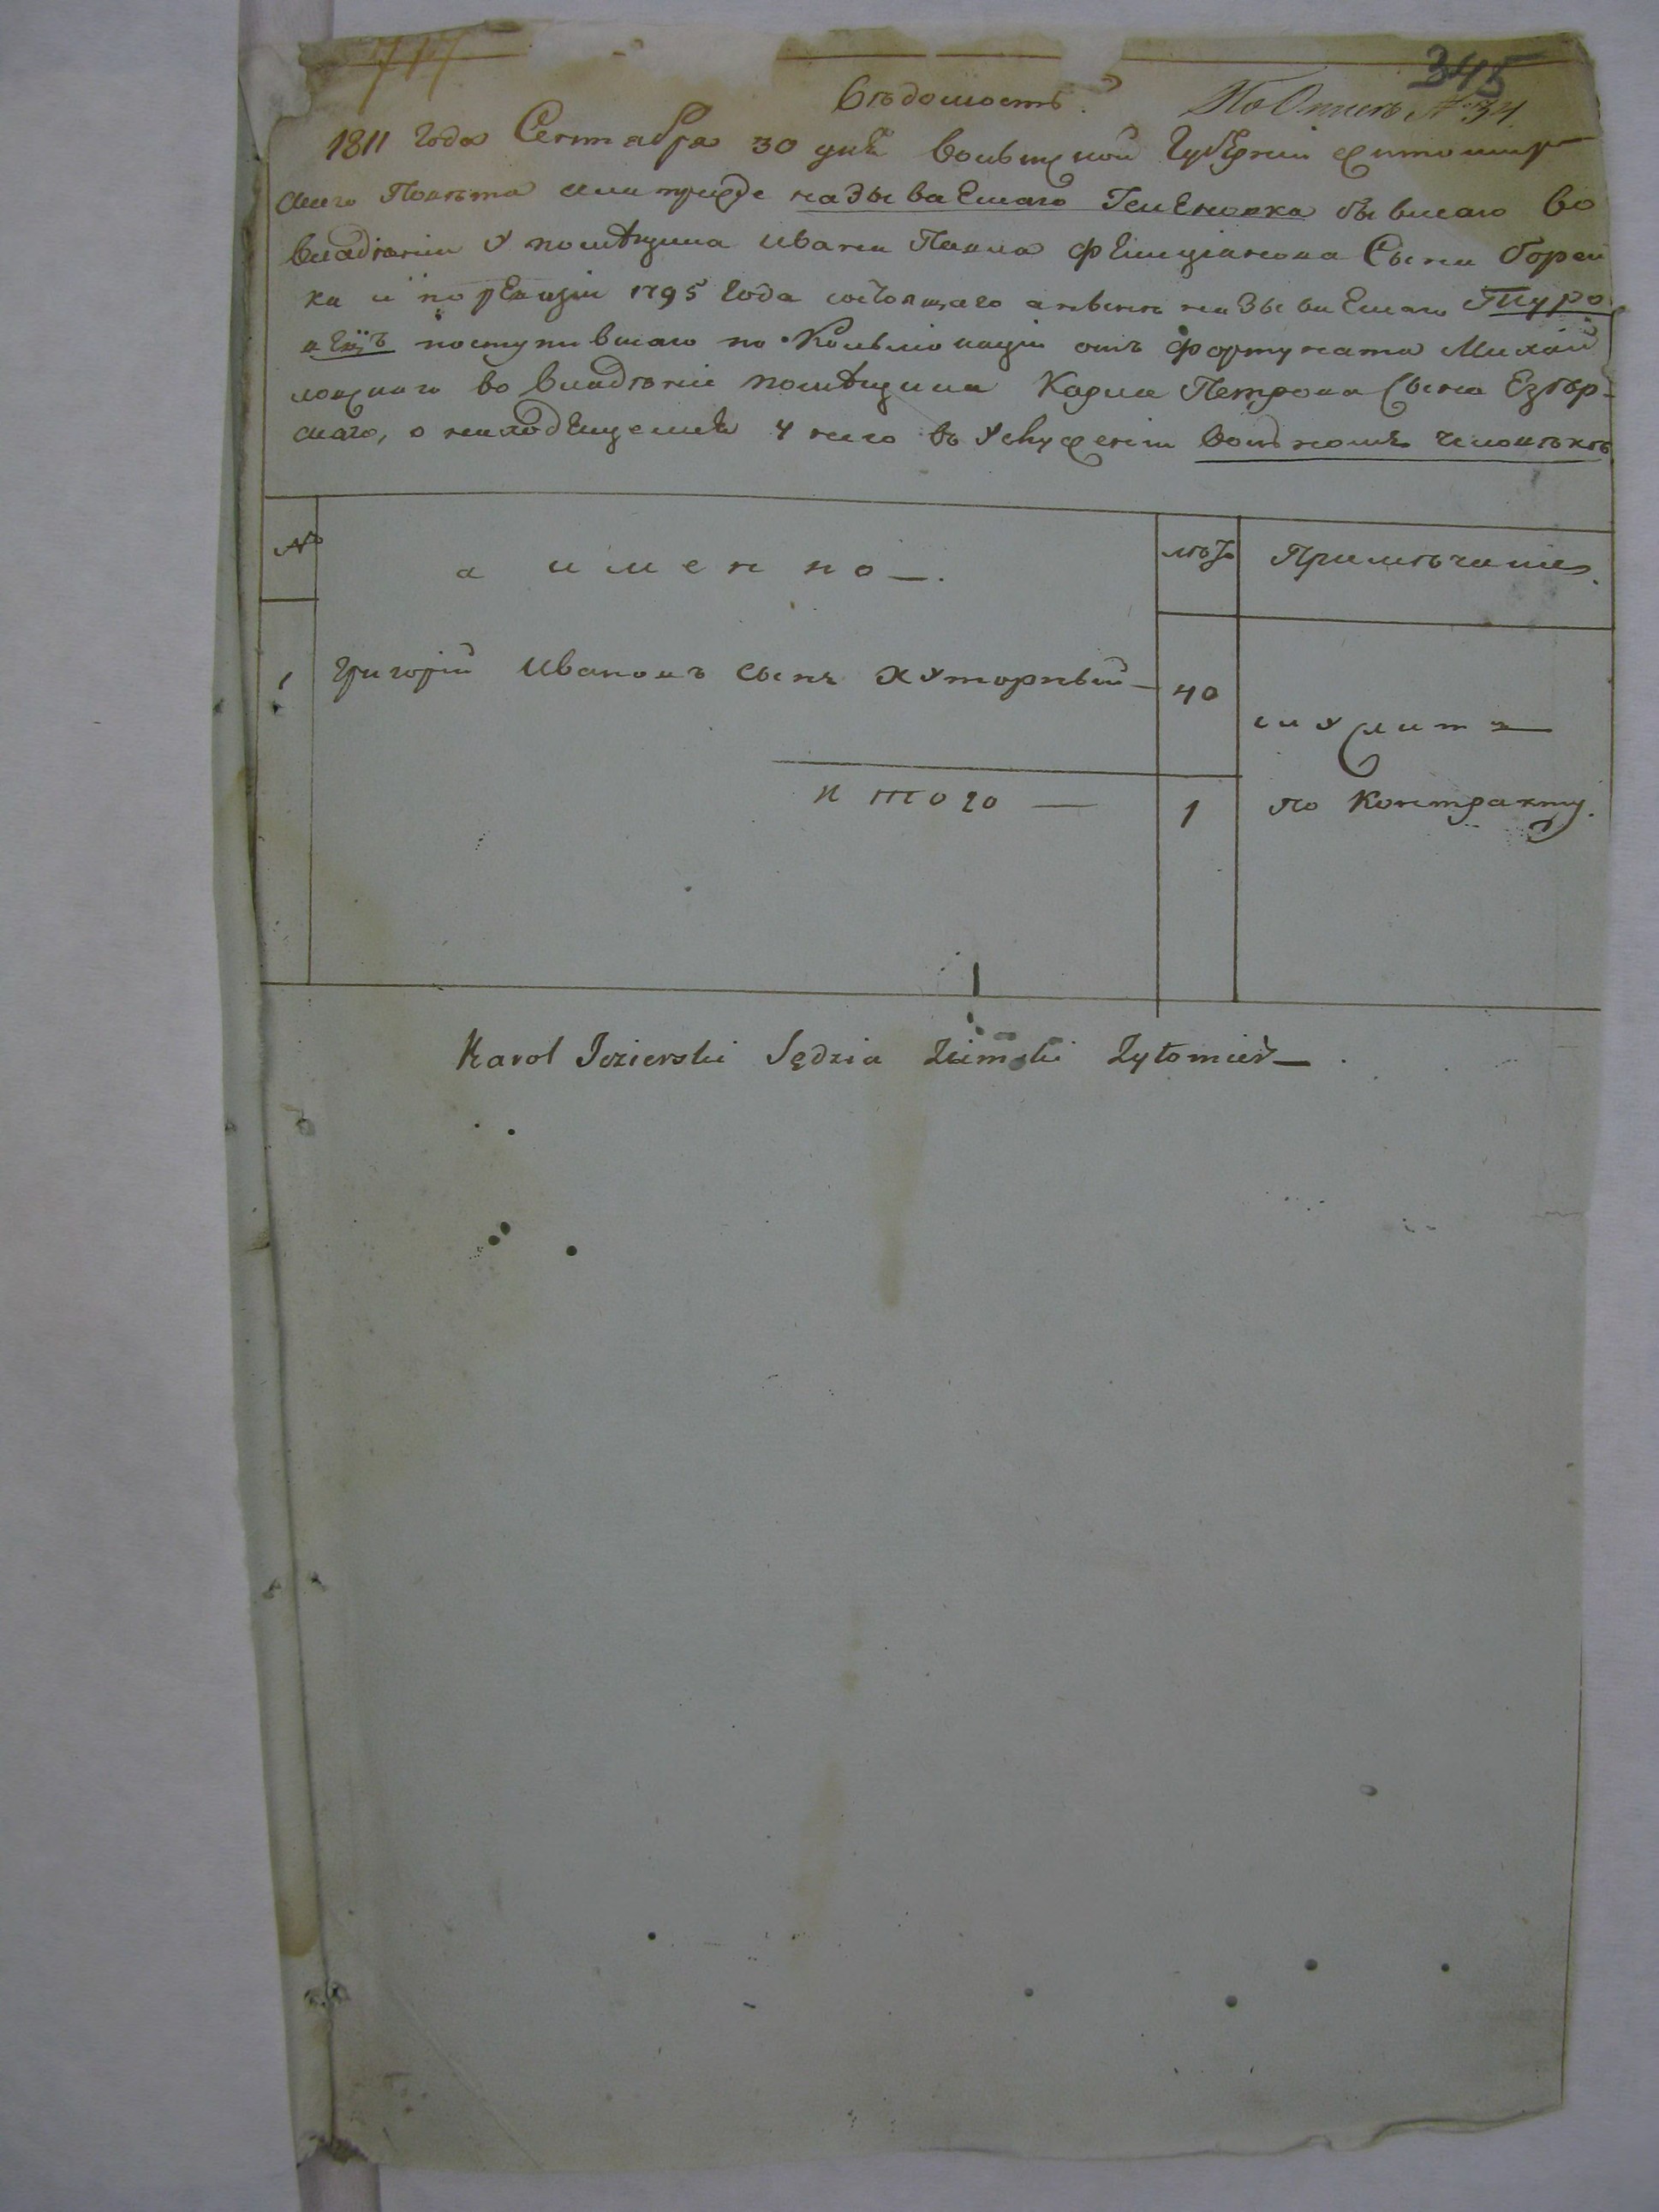 717
345
Вѣдомость.
По Описи № 34.
1811 года Сентабра 30 дня Волынской Губерніи Житомир
скаго Повѣта села прежде называемаго Геленовка бывшаго во
владѣніи у помѣщика Ивана Павла Фелиціанова Сына Борей
ка и по ревизіи 1795 года состоящаго а нынѣ называемаго Туро
вецъ поступившаго по Комбинаціи отъ Фортуната Михай
ловскаго во владѣніе помѣщика Карла Петрова Сына Езѣр-
скаго, о находещемся у него въ услуженіи вольномъ человѣкѣ
№ а именно —. лѣтъ Примѣчаніе.
1 Григорій Ивановъ сынъ Хуторный — 40
служитъ —
итого — 1 по Контракту.
Karol Jezierski Sędzia Ziemski Żytomier —